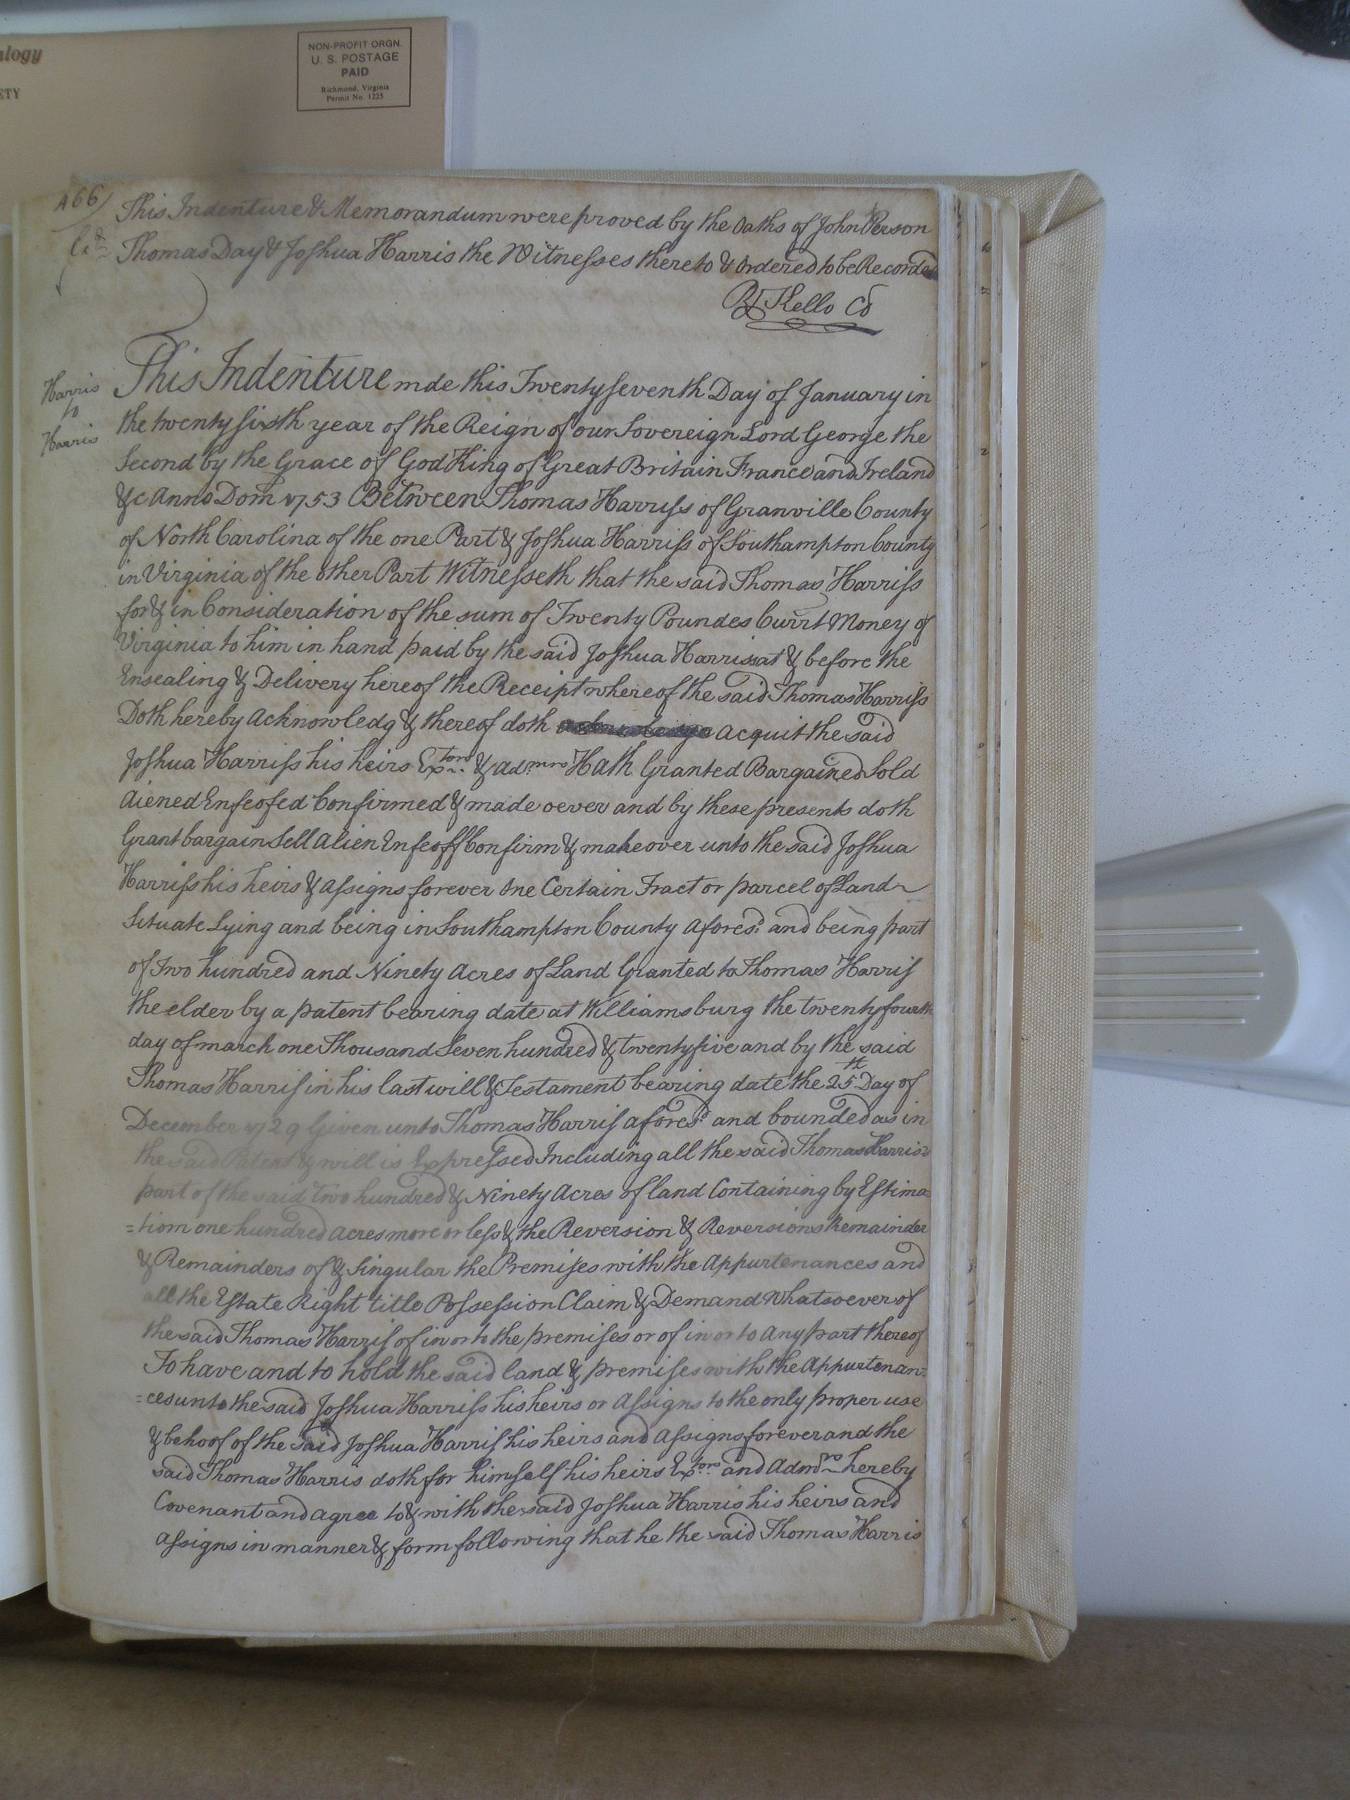 alogy
ETY
NON-PROFIT ORGN.
U. S. POSTAGE
PAID
Richmond, Virginia
Permit No. 1225
466
This Indenture & Memorandum were proved by the Oaths of John Person
Thomas Day & Joshua Harris the Witnesses thereto & Ordered to be Recorded
Kello
Harris
to
Harris
This Indenture mde this Twenty seventh Day of January in
the twenty sixth year of the Reign of our Sovereign Lord George the
Second by the Grace of God King of Great Britain France and Ireland
&c Anno Dom 1753 Between Thomas Harriss of Granville County
of North Carolina of the one Part & Joshua Harriss of Southampton County
in Virginia of the other Part Witnesseth that the said Thomas Harriss
for & in Consideration of the sum of Twenty Poundes Currt Money of
Virginia to him in hand paid by the said Joshua Harriss at & before the
Ensealing & Delivery hereof the Receipt whereof the said Thomas Harriss
Doth hereby Acknowledg & thereof doth acquit the said
Joshua Harriss his heirs Extors & admrs Hath Granted Bargained Sold
Aiened Enfeofed Confirmed & made oever and by these presents doth
Grant bargain Sell Alien Enfeoff Confirm & make over unto the said Joshua
Harriss his heirs & Assigns forever One Certain Tract or parcel of Land
Situate Lying and being in Southampton County aforesd and being part
of Two hundred and Ninety Acres of Land Granted to Thomas Harris
the elder by a patent bearing date at Williamsburg the twenty fourth
day of march one Thousand Seven hundred & twenty five and by the said
Thomas Harris in his last will & Testament bearing date the 25th Day of
December 1729 Given unto Thomas Harris aforesd and bounded as in
the said Patent & will is Expressed Including all the said Thomas Harris's
part of the said two hundred & Ninety Acres of land Containing by Estima
=tiom one hundred acres more or less & the Reversion & Reversions Remainder
& Remainders of & Singular the Premises with the Appurtenances and
all the Estate Right title Possession Claim & Demand Whatsoever of
the said Thomas Harris of in or to the premises or of in or to Any part thereof
To have and to hold the said land & premises with the Appurtenan=
=ces unto the said Joshua Harriss his heirs or Assigns to the only proper use
& behoof of the Said Joshua Harris his heirs and Assigns forever and the
said Thomas Harris doth for himself his heirs Extors and Admrs hereby
Covenant and agree to & with the said Joshua Harris his heirs and
Assigns in manner & form following that he the said Thomas Harris